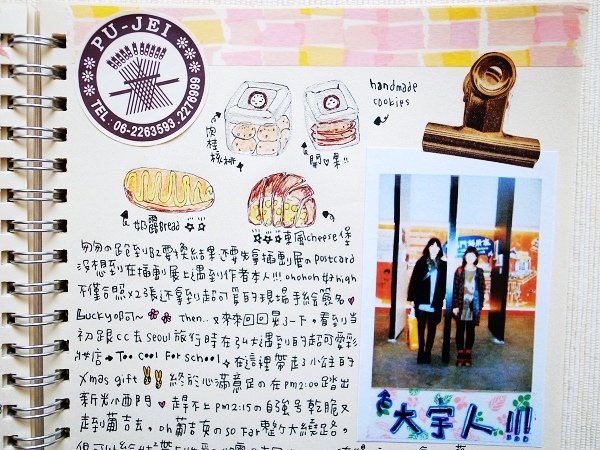 PU-JEI
TEL: 06-2263593. 2276999
handmade
cookies
肉桂
核桃
開心果!!
奶露Bread
東風cheese堡
匆匆の跑到B2要換結果還要先拿插劃展の postcard
沒想到在插劃展上遇到作者本人!!! ohohoh好high
不僅合照x2張還拿到超可愛的現場手繪簽名
Bucky啊~ Then.. 又來來回回晃了一下,看到當
初跟cc去seoul旅行時在24h遇到的超可愛彩
妝店→Too Cool For School。在這裡帶走了小姪的
Xmas gift 終於心滿意足の在pm2:00踏出
新光小西門 趕不上pm2:15の自強號乾脆又
走到葡吉去,oh葡吉真の so Far 整個大繞路,
大宇人!!!